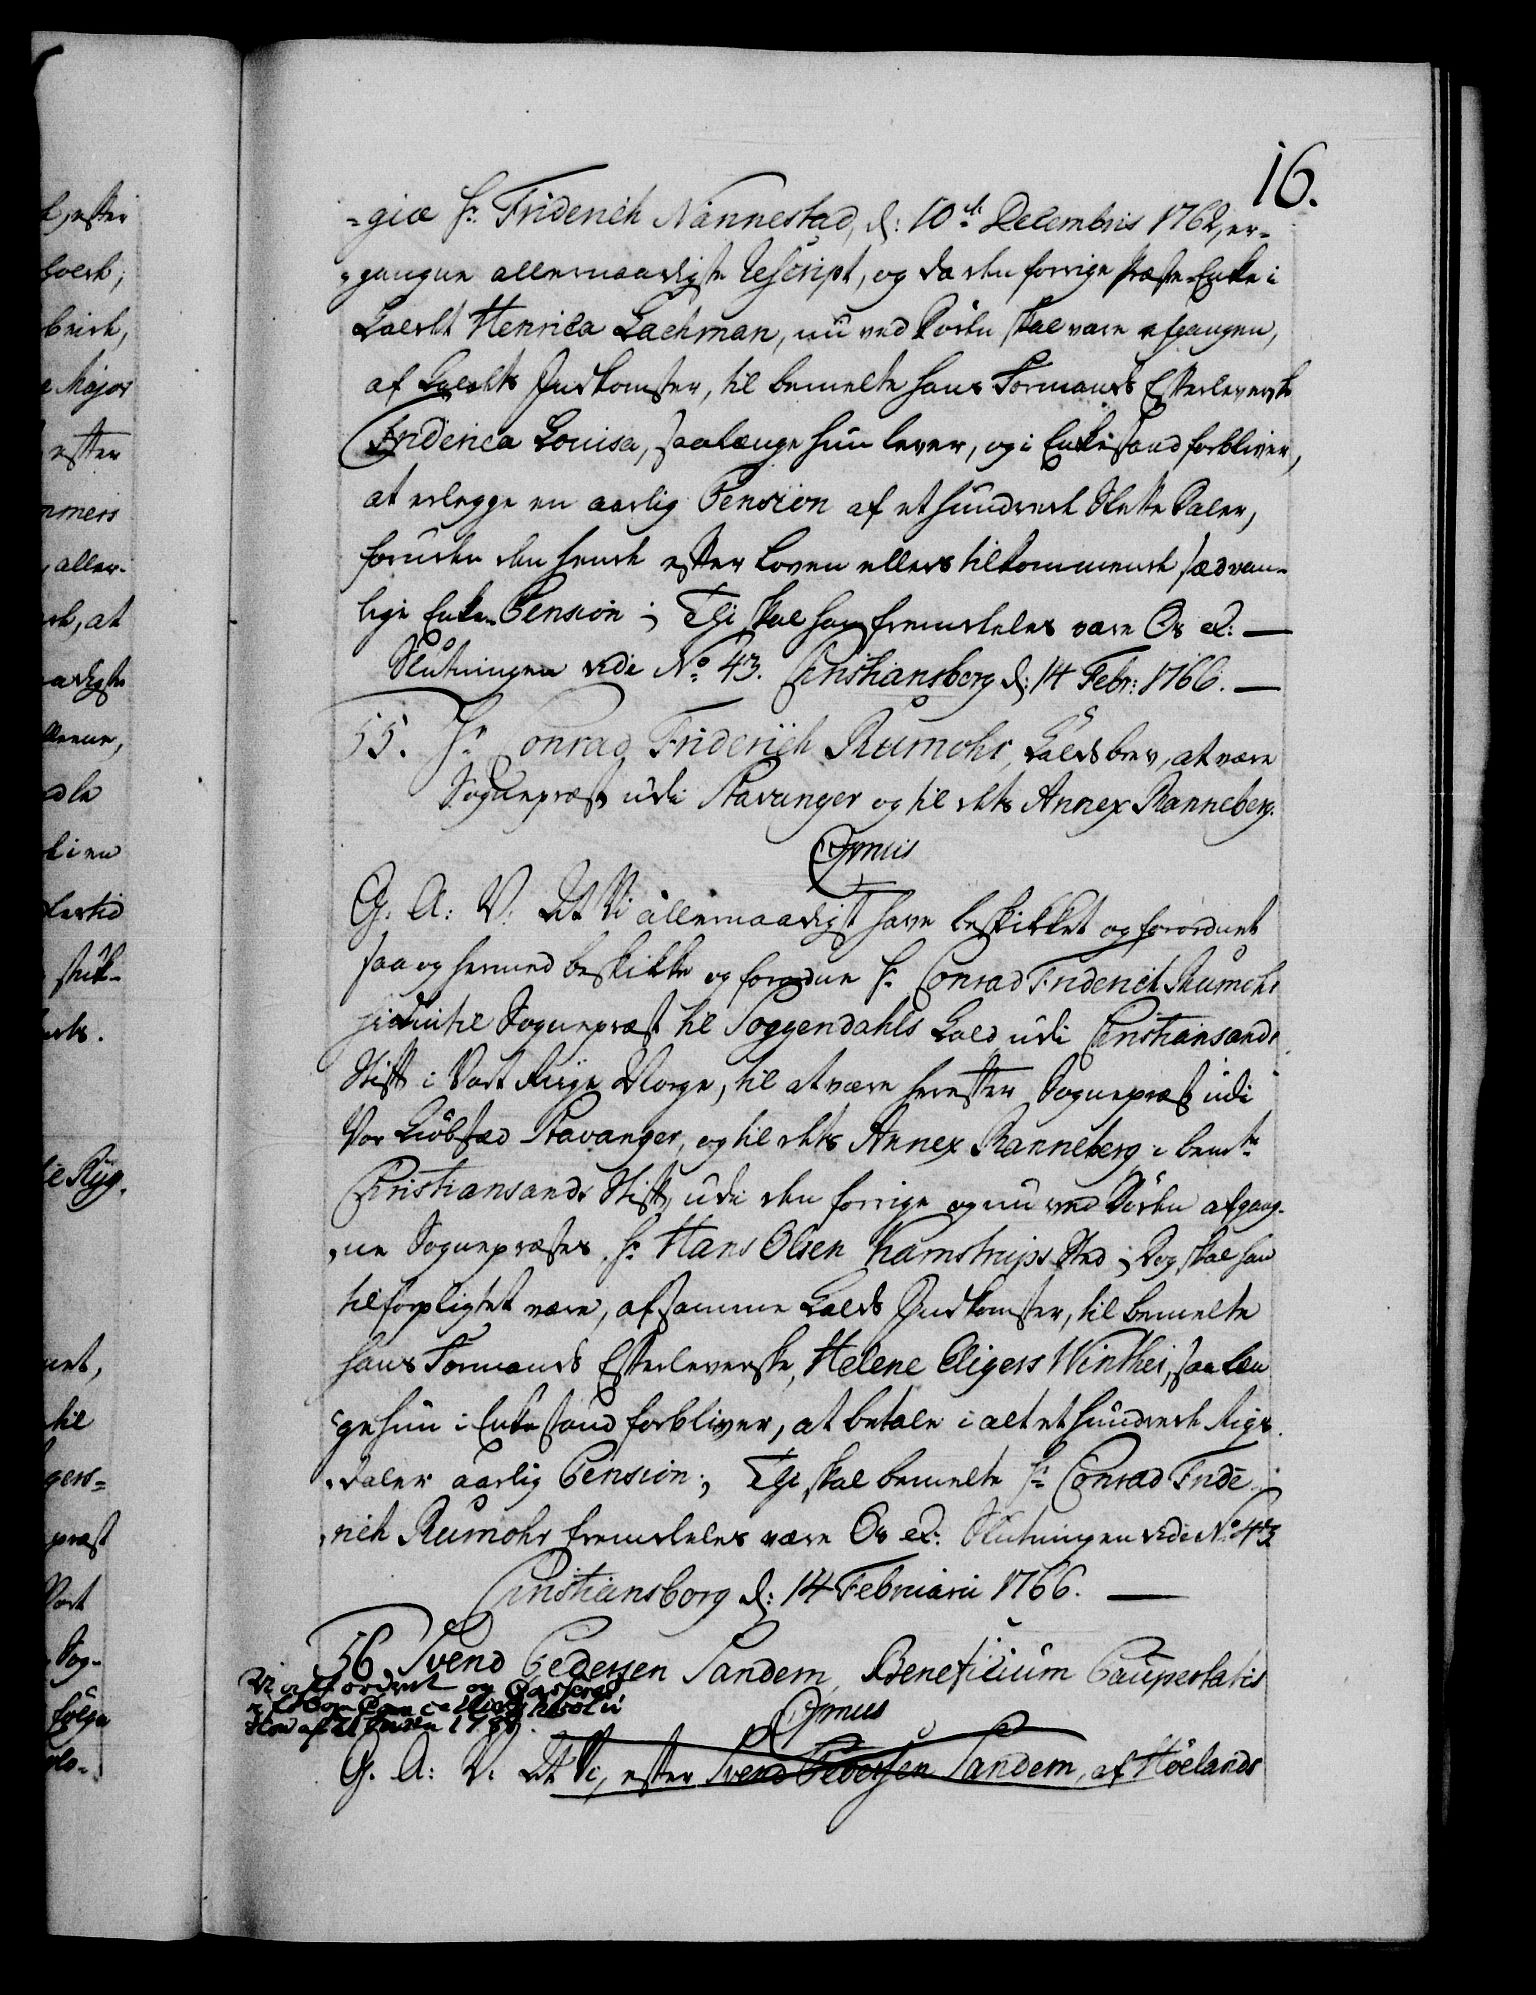 16.
=giæ Hr. Friderich Nannestad, d: 10de Decembris 1762, er=
=gangne allernaadigste Rescript, og da den forrige Præste-Enke i
Kaldet Henrica Lachman, nu ved Døden skal være afgangen,
af Kaldets Indkomster, til bemelte hans Formands Efterleverske
Friderica Louisa, saalænge hun lever, og i Enkestand forbliver,
at erlegge en aarlig Pension af et hundrede Slette Daler,
foruden den hende efter Loven ellers tilkommende sædvan-
lige Enke-Pension; Thi skal han fremdeles være Os etc: —
Slutningen vide No. 43. Christiansborg d: 14 Febr: 1766. —
55. Hr Conrad Friderich Rumohr, Kaldsbrev, at være
Sognepræst udi Stavanger og til dets Annex Ranneberg.
Cfmus
G. A: V. At Vi allernaadigst have beskikket og forordnet
saa og hermed beskikke og forordne Hr. Conrad Friderich Rumohr
hidindtil Sognepræst til Soggendahls Kald udi Christiansands
Stift i Vort Rige Norge, til at være herefter Sognepræst udi
Vor Kiøbstæd Stavanger, og til dets Annex Ranneberg i bemte
Christiansands Stift, udi den forrige og nu ved Døden afgang-
ne Sognepræstes Hr. Hans Olsen Kamstrups Sted; Dog skal han
tilforpligtet være, af samme Kalds Indkomster, til bemelte
hans Formands Efterleverske, Helene Eligers Winther, saalæn
ge hun i Enkestand forbliver, at betale i alt et hundrede Rigs-
daler aarlig Pension; Thi skal bemelte Hr. Conrad Fride-
rich Rumohr fremdeles være Os etc: Slutningen vide No. 43
Christiansborg d: 14 Februarii 1766. —
56. Svend Pedersen Sandem, Beneficium Paupertatis
Cfmus
G. A: V. At Vi, efter Svend Pedersen Sandem, af Høelands